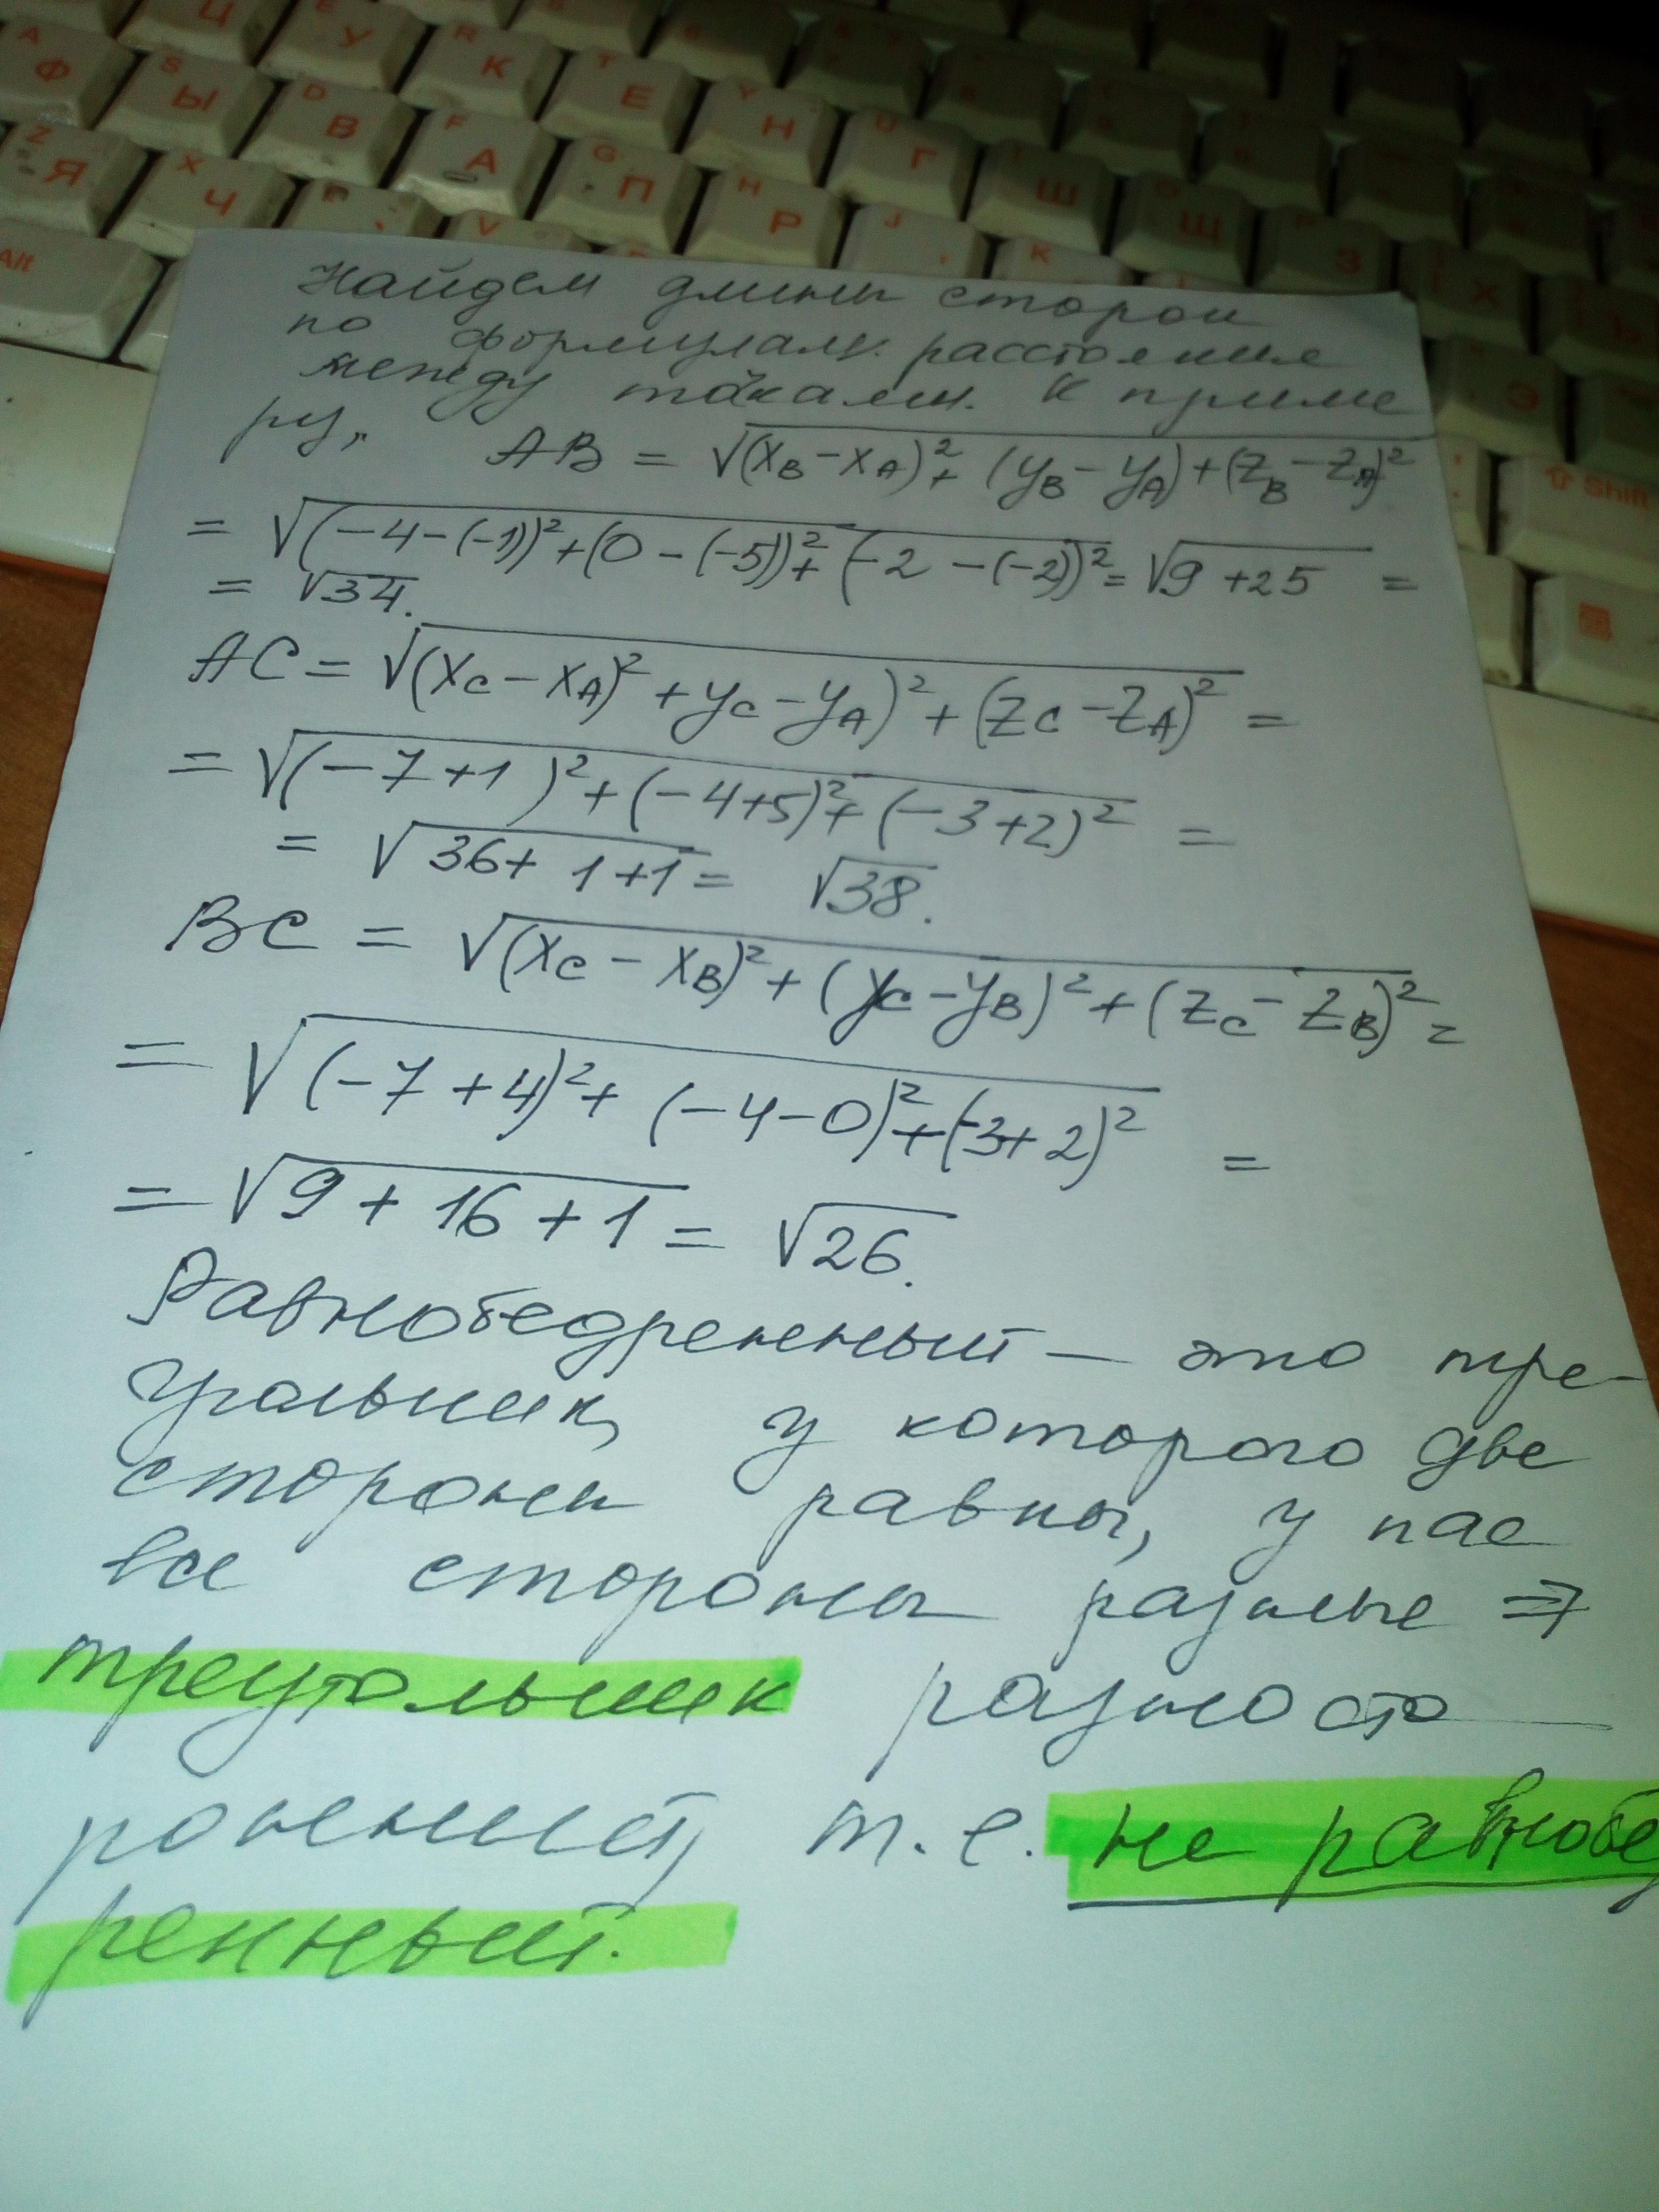 Ц У К Е Н Г Ш Щ З Х
Ф Ы В А П Р
Я Ч
Alt
Shift
Найдем длины сторон
по формулам расстояние
между точками. К приме
ру,, AB = √(x_B - x_A)² + (y_B - y_A) + (z_B - z_A)²
= √(-4-(-1))² + (0-(-5))² + (-2-(-2))² = √9+25 =
= √34.
AC = √(x_C - x_A)² + y_C - y_A)² + (z_C - z_A)² =
= √(-7+1)² + (-4+5)² + (-3+2)² =
= √36+1+1 = √38.
BC = √(x_C - x_B)² + (y_C - y_B)² + (z_C - z_B)² =
= √(-7+4)² + (-4-0)² + (-3+2)² =
= √9+16+1 = √26.
Равнобедренный — это тре-
угольник, у которого две
стороны равны, у нас
все стороны разные ⇒
треугольник разносто-
ронний, т.е. не равнобе
ренный.